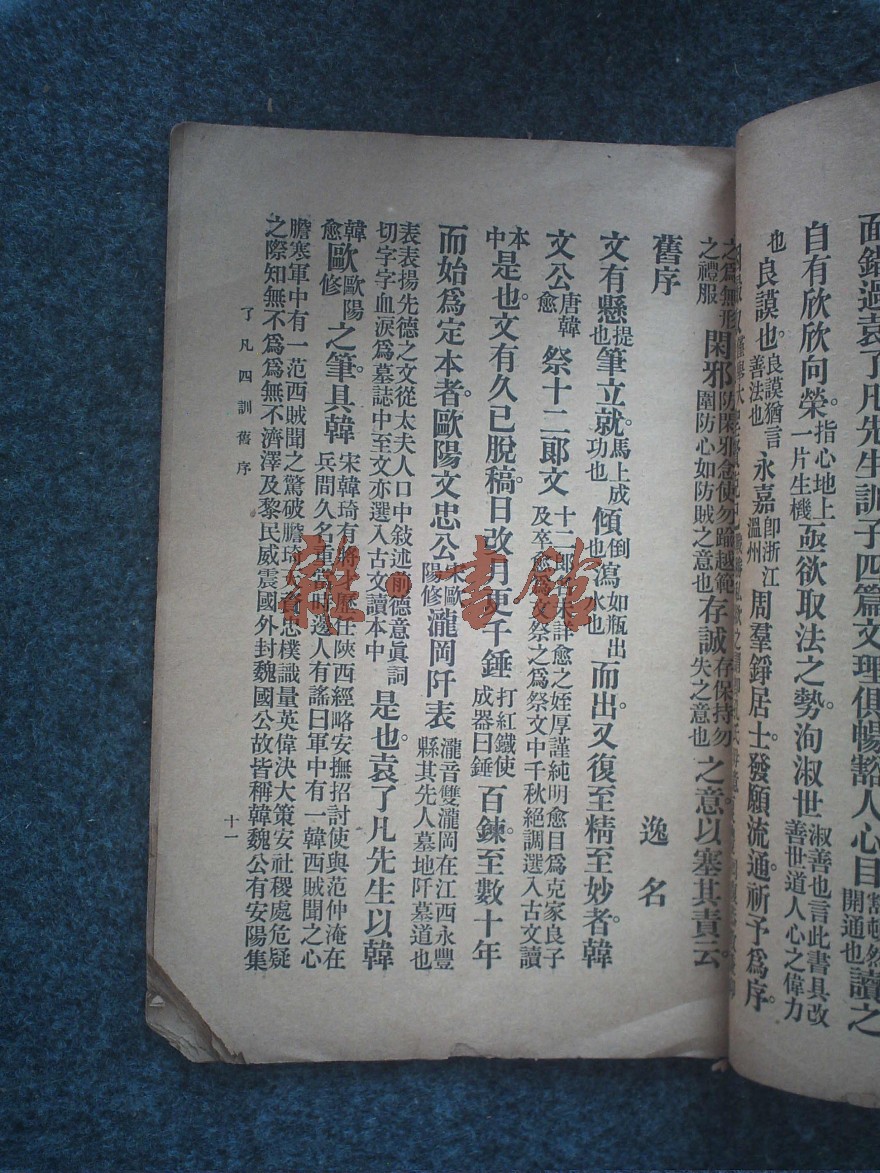 面錯過袁了凡先生訓子四篇文理俱暢豁人心目豁頓然開通也讀之
自有欣欣向榮。指心地上一片生機亟欲取法之勢洵淑世淑善也言此書具改善世道人心之偉力
也良謨也。良謨猶言善法也永嘉卽浙江溫州周羣錚居士發願流通。祈予爲序。
之爲無形之禮服閑邪防閑邪念使勿踰越範圍防心如防賊之意也存誠存保持勿失之意也之意以塞其責云。
舊序
逸名
文有懸提也筆立就。馬上成功也傾倒也瀉如瓶出水也而出。又復至精至妙者。韓
文公唐韓愈祭十二郞文十二郎愈之姪厚謹純明愈目爲克家良子及卒愈爲文祭之爲祭文中千秋絕調選入古文讀
本中是也。文有久已脫稿。日改月更千錘打紅鐵使成器曰錘百鍊。至數十年
而始爲定本者。歐陽文忠公宋歐陽修瀧岡阡表瀧音雙瀧岡在江西永豐縣其先人墓地阡墓道也
表表揚先德之文從太夫人口中敍述前德意眞詞切字字血淚爲墓誌中至文亦選入古文讀本中是也。袁了凡先生以韓
韓愈歐歐陽修之筆。具韓宋韓琦有將歷任陝西經略安撫招討使與范仲淹在兵間久名重當時邊人有謠曰軍中有一韓西賊聞之心
膽寒軍中有一范西賊聞之驚破膽琦天資忠樸識量英偉決大策安社稷處危疑
之際知無不爲爲無不濟澤及黎民威震國外封魏國公故皆稱韓魏公有安陽集
了凡四訓舊序
十一
雜·書館